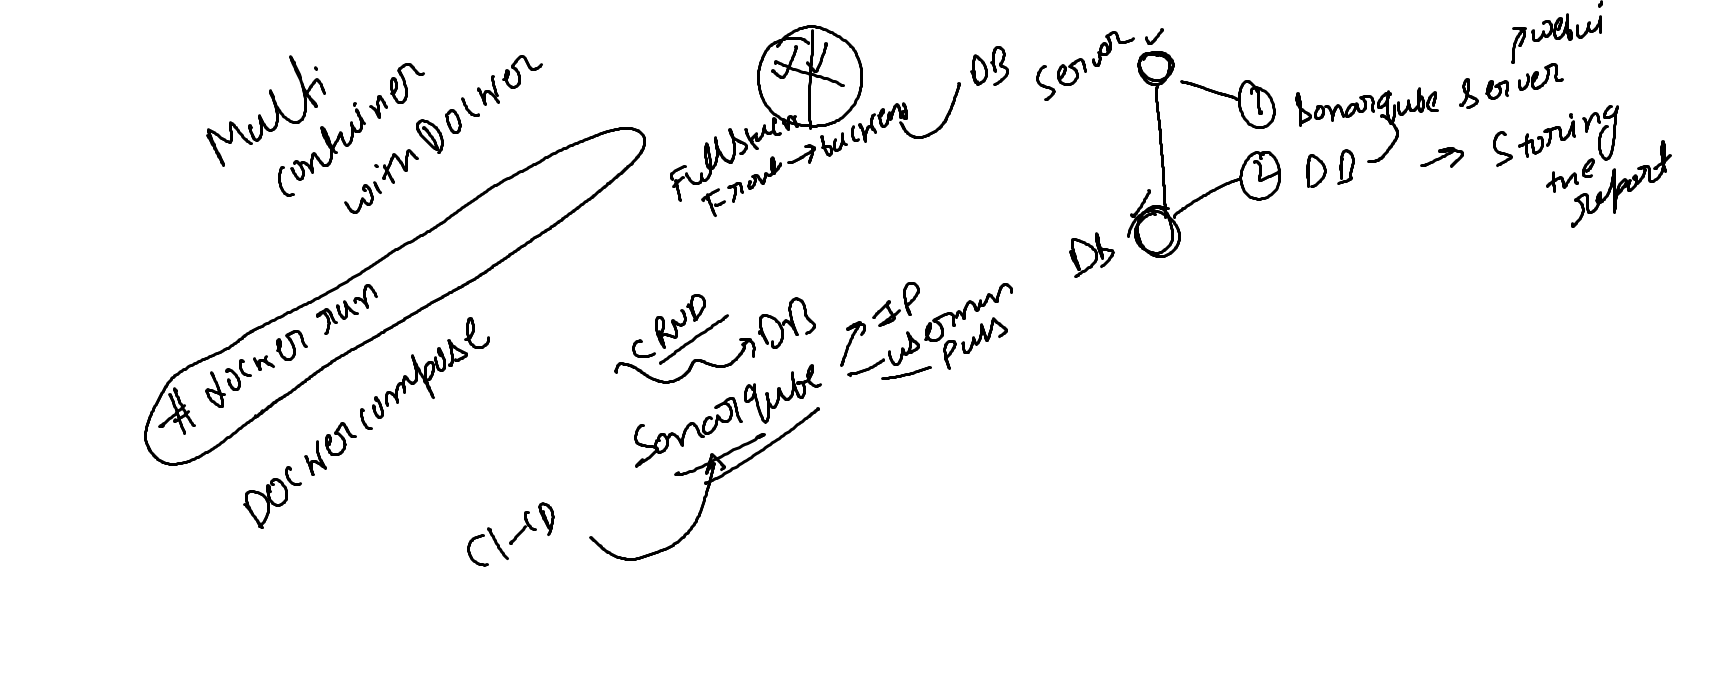 Multi
container
with Docker
# docker run
Docker compose
Fullstack
Front → backend
DB
Server
① Sonarqube Server
webui
② DB → Storing
the
report
Db
DB
Sonarqube
IP
usernam
pass
CI-CD